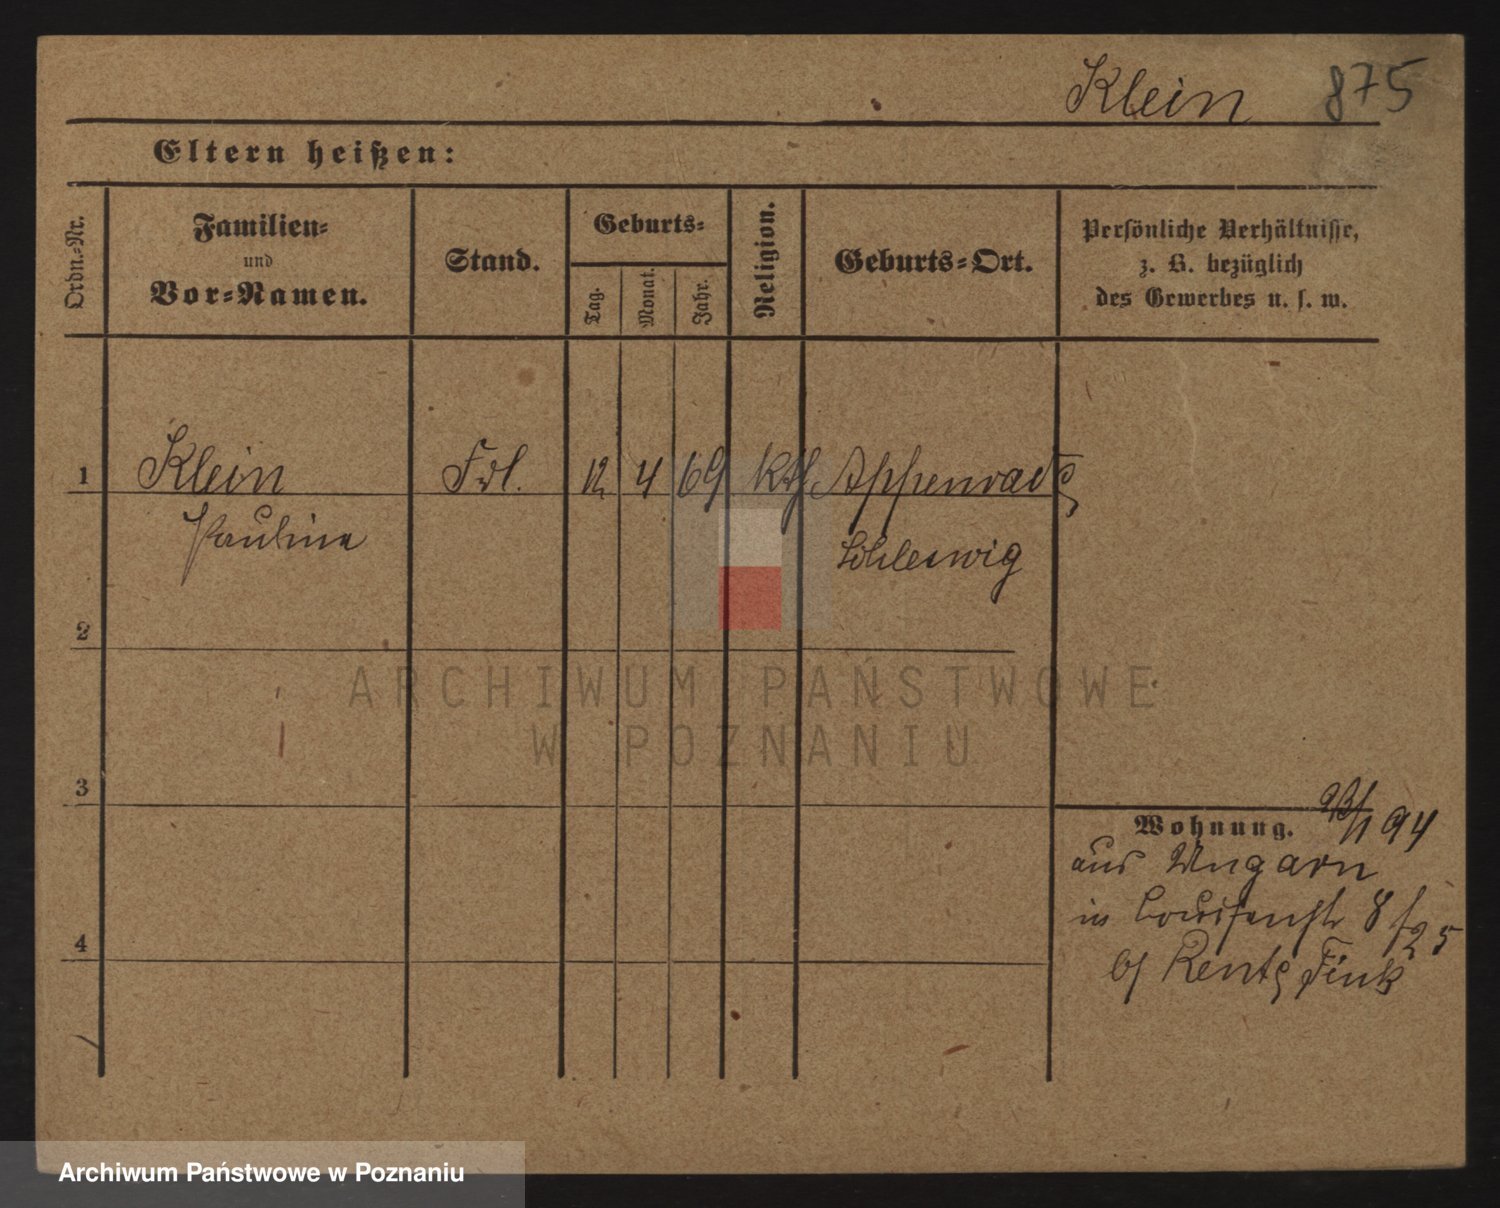 Klein 875
Eltern heißen:
Ordn.-Nr.
Familien-
und
Vor-Namen.
Stand.
Geburts-
Tag.
Monat.
Jahr.
Religion.
Geburts-Ort.
Persönliche Verhältnisse,
z. B. bezüglich
des Gewerbes u. s. w.
1 Klein Frl. 12 4 69 kth Appenrade
Pauline Schleswig
2
3
Wohnung. 23/1 94
aus Ungarn
in Louisenstr 8 f 25
b/ Rentz Fink
4
ARCHIWUM PAŃSTWOWE
W POZNANIU
Archiwum Państwowe w Poznaniu